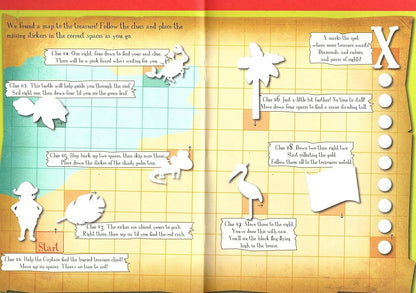 We found a map to the treasure! Follow the clues and place the
missing stickers in the correct spaces as you go.
X marks the spot
where more treasure awaits!
Diamonds, and rubies,
and pieces of eight!
X
Clue #4: One right, four down to find your next clue.
There will be a pink lizard where waiting for you.
Clue #5: This turtle will help guide you through the reef.
Sail right one, then down four 'til you see the green leaf.
Clue #6: Just a little bit further! No time to stall!
Move down four spaces to find a crane standing tall.
Clue #5: Hop back up two spaces, then skip over three.
Place down the sticker of the shady palm tree.
Clue #8: Down two then right two
Start collecting the gold.
Follow them all to the treasures untold.
Clue #3: The riches are almost yours to grab.
Right three, then up six 'til you find the red crab.
Clue #7: Move three to the right.
You're done with sea.
You'll see the black flag flying
high in the breeze.
Start
Clue #1: Help the Captain find the buried treasure chest!
Move up six spaces. There's no time to rest!